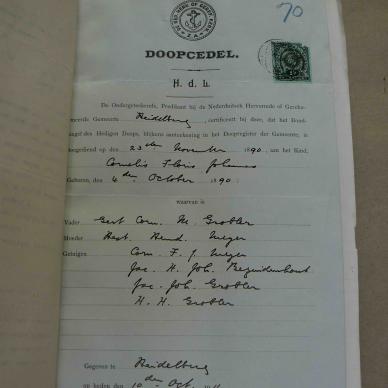 70
DOOPCEDEL.
H. d. L.
De Ondergeteekende, Predikant bij de Nederduitsch Hervormde of Gerefor-
meerde Gemeente Heidelberg, certificeert bij deze, dat het Bond-
zegel des Heiligen Doops, blijkens aanteekening in het Doopregister der Gemeente, is
toegediend op den 23sten November 1890, aan het Kind,
Cornelis Floris Johannes
Geboren, den 4den October 1890
waarvan is
Vader Gert Corn. M. Grobler
Moeder Hest. Hend. Meyer
Getuigen Corn. F. J. Meyer
Jac. H. Joh. Bezuidenhout
Jac. Joh. Grobler
H. H. Grobler
Gegeven te Heidelberg
op heden den 10den Oct.